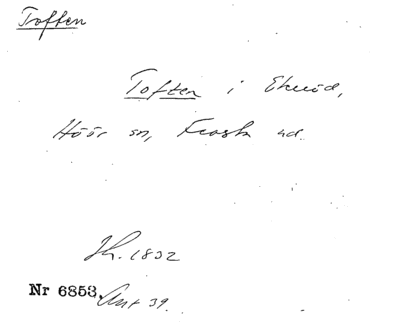 Toften
Toften i Ekeröd,
Höör sn, Frosta hd.
Jh. 1832
Nr 6853. Ant 39.